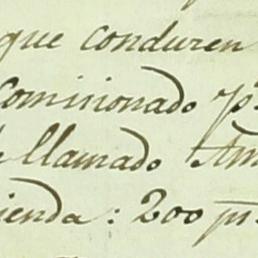 que conduren
comicionado p.
llamado Am
ienda: 200 p.